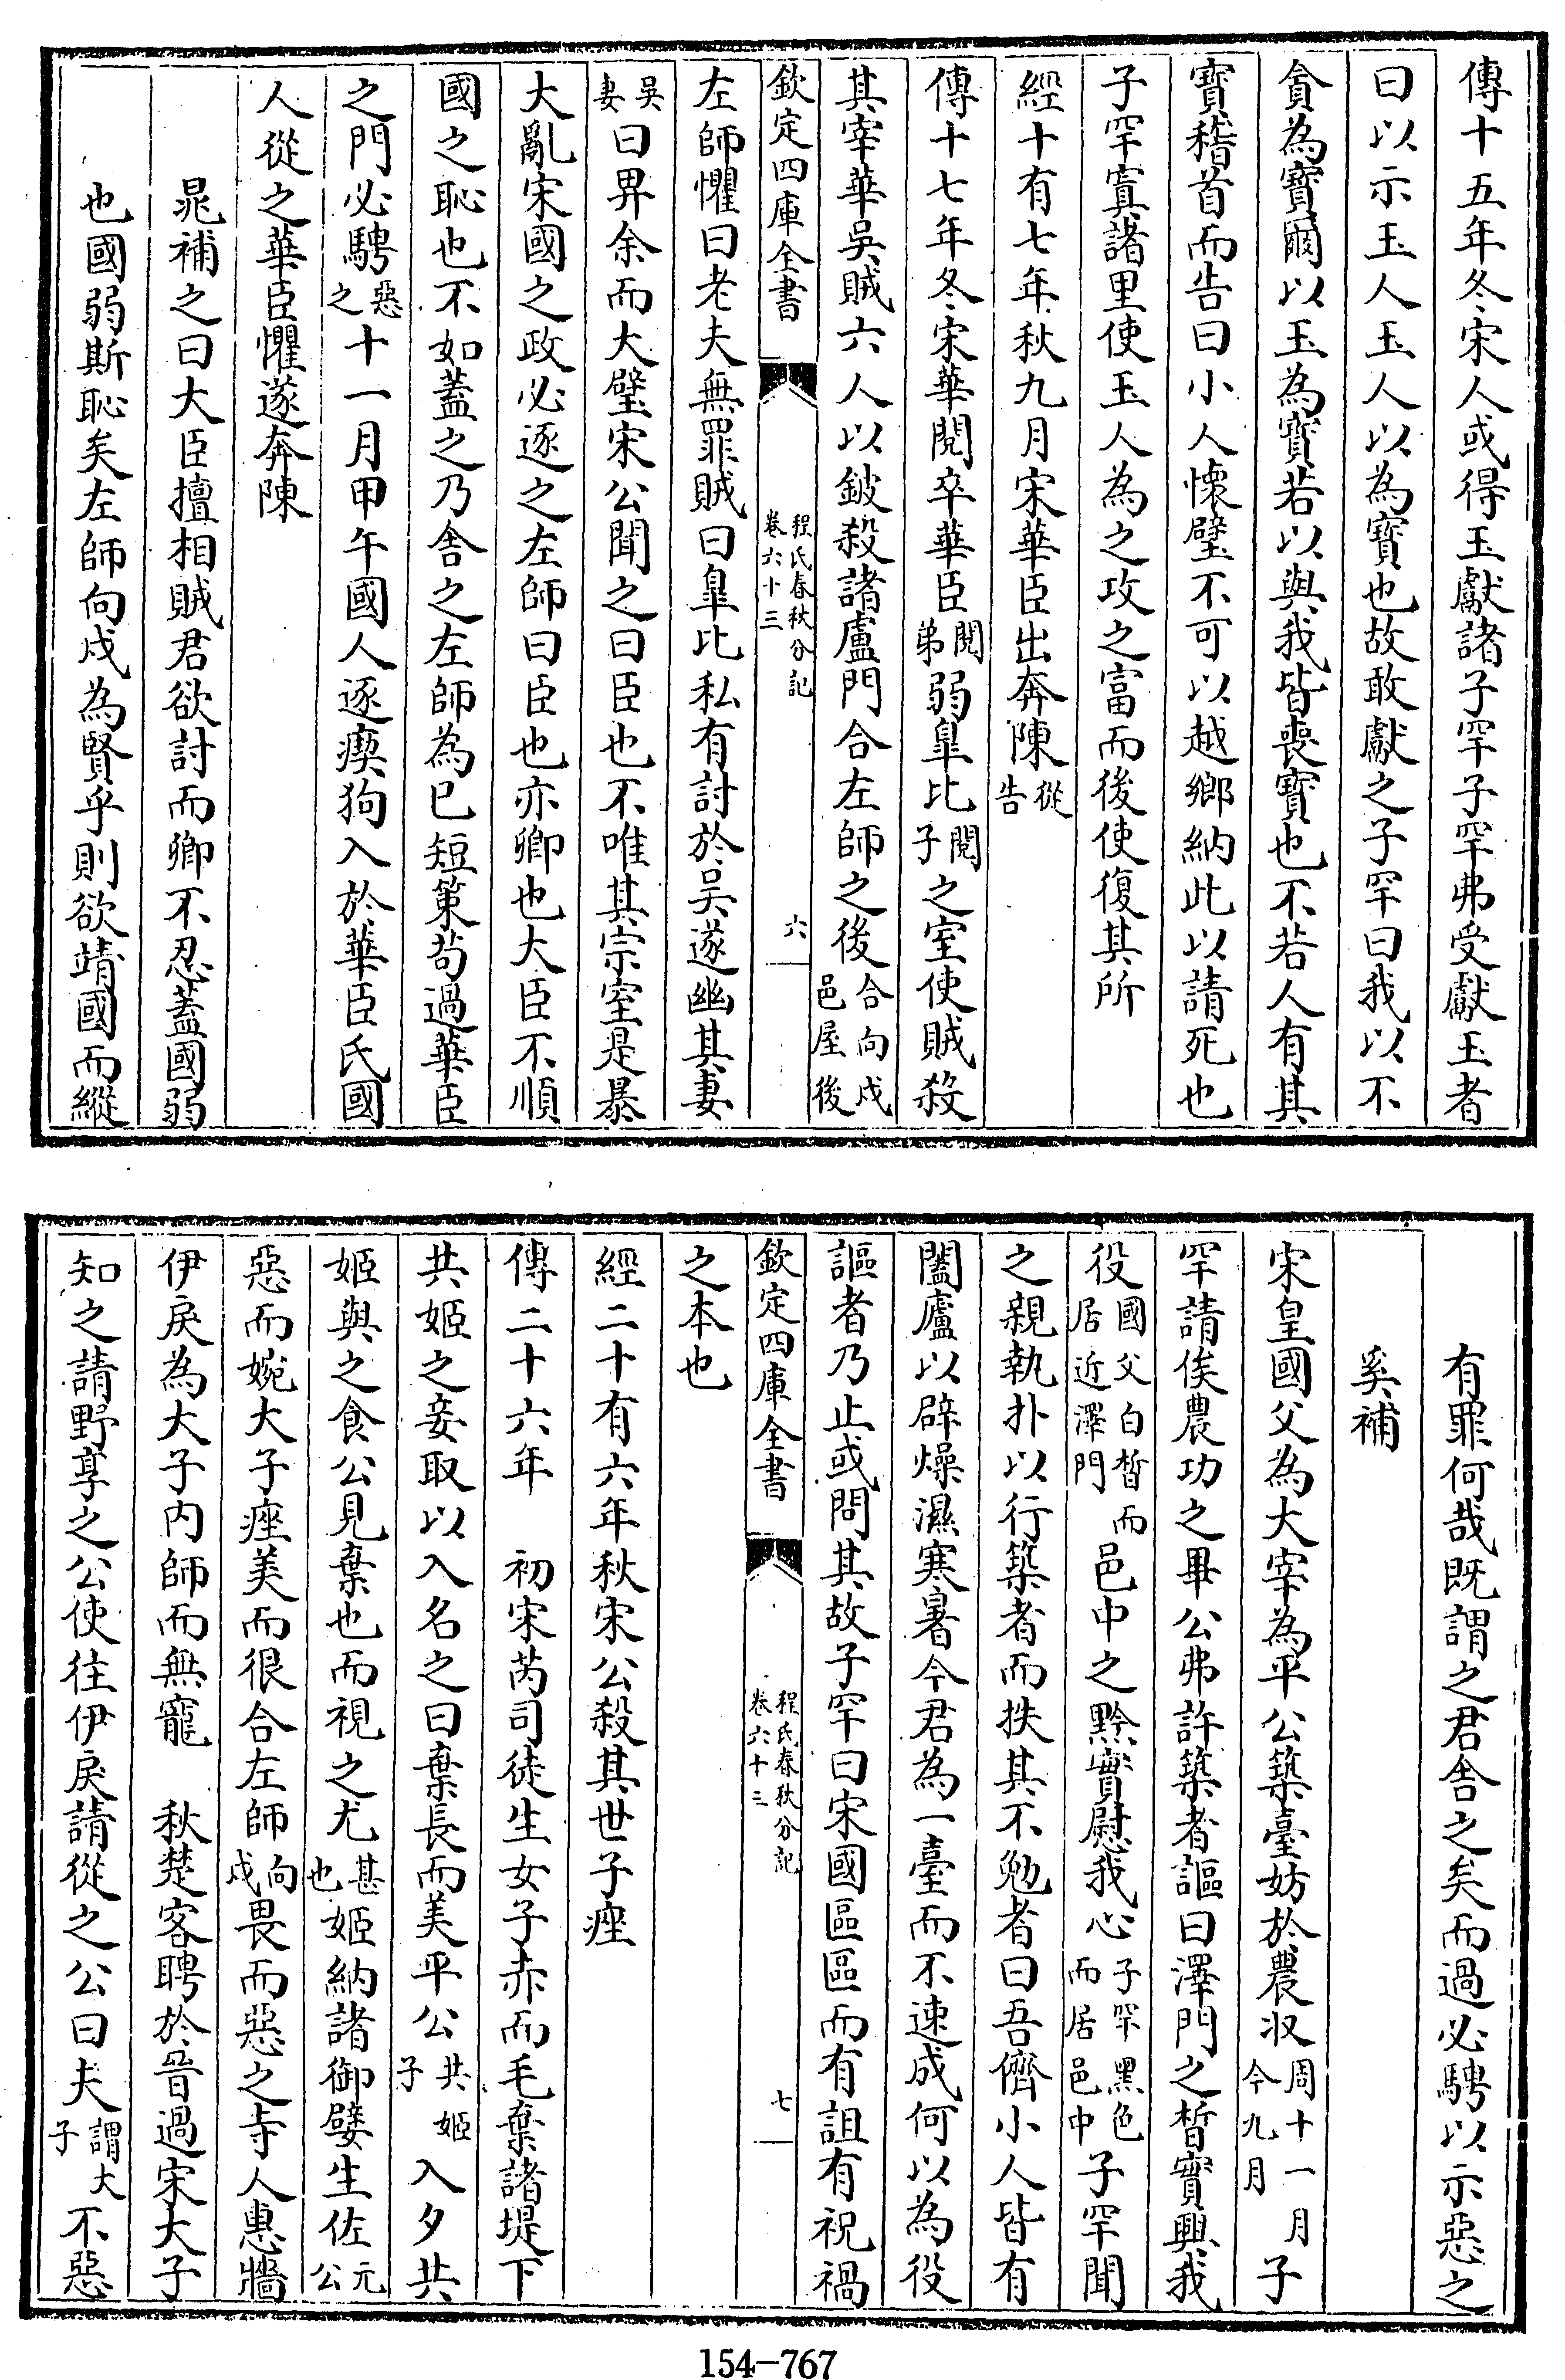 傳十五年冬宋人或得玉獻諸子罕子罕弗受獻玉者
曰以示玉人玉人以為寶也故敢獻之子罕曰我以不
貪為寶爾以玉為寶若以與我皆喪寶也不若人有其
寶稽首而告曰小人懷璧不可以越鄉納此以請死也
子罕寘諸里使玉人為之攻之富而後使復其所
經十有七年秋九月宋華臣出奔陳從告
傳十七年冬宋華閱卒華臣閱弟弱臯比閱子之室使賊殺
其宰華吳賊六人以鈹殺諸盧門合左師之後合向戌邑屋後
欽定四庫全書 程氏春秋分記卷六十三 六
左師懼曰老夫無罪賊曰臯比私有討於吳遂幽其妻
吳妻曰畀余而大璧宋公聞之曰臣也不唯其宗室是暴
大亂宋國之政必逐之左師曰臣也亦卿也大臣不順
國之恥也不如蓋之乃舍之左師為已短策苟過華臣
之門必騁惡之十一月甲午國人逐瘈狗入於華臣氏國
人從之華臣懼遂奔陳
晁補之曰大臣擅相賊君欲討而卿不忍蓋國弱
也國弱斯恥矣左師向戌為賢乎則欲靖國而縱
有罪何哉既謂之君舍之矣而過必騁以示惡之
奚補
宋皇國父為大宰為平公築臺妨於農収周十一月今九月子
罕請俟農功之畢公弗許築者謳曰澤門之晳實興我
役國父白晳而居近澤門邑中之黔實慰我心子罕黑色而居邑中子罕聞
之親執扑以行築者而抶其不勉者曰吾儕小人皆有
闔廬以辟燥濕寒暑今君為一臺而不速成何以為役
謳者乃止或問其故子罕曰宋國區區而有詛有祝禍
欽定四庫全書 程氏春秋分記卷六十三 七
之本也
經二十有六年秋宋公殺其世子痤
傳二十六年 初宋芮司徒生女子赤而毛棄諸堤下
共姬之妾取以入名之曰棄長而美平公共姬子入夕共
姬與之食公見棄也而視之尤甚也姬納諸御嬖生佐元公
惡而婉大子痤美而很合左師向戌畏而惡之寺人惠牆
伊戾為大子內師而無寵 秋楚客聘於晉過宋大子
知之請野享之公使往伊戾請從之公曰夫謂大子不惡
154-767